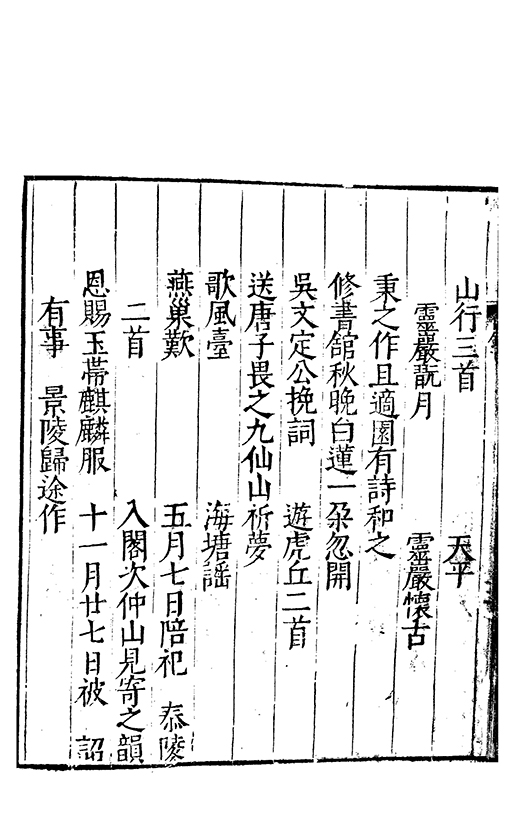 山行三首　天平
靈巖翫月　靈巖懷古
秉之作且適園有詩和之
修書舘秋晚白蓮一朶忽開
吳文定公挽詞　遊虎丘二首
送唐子畏之九仙山祈夢
歌風臺　海塘謡
燕巢歎　五月七日陪祀　泰陵
二首　入閣次仲山見寄之韻
恩賜玉帶麒麟服　十一月廿七日被　詔
有事　景陵歸途作